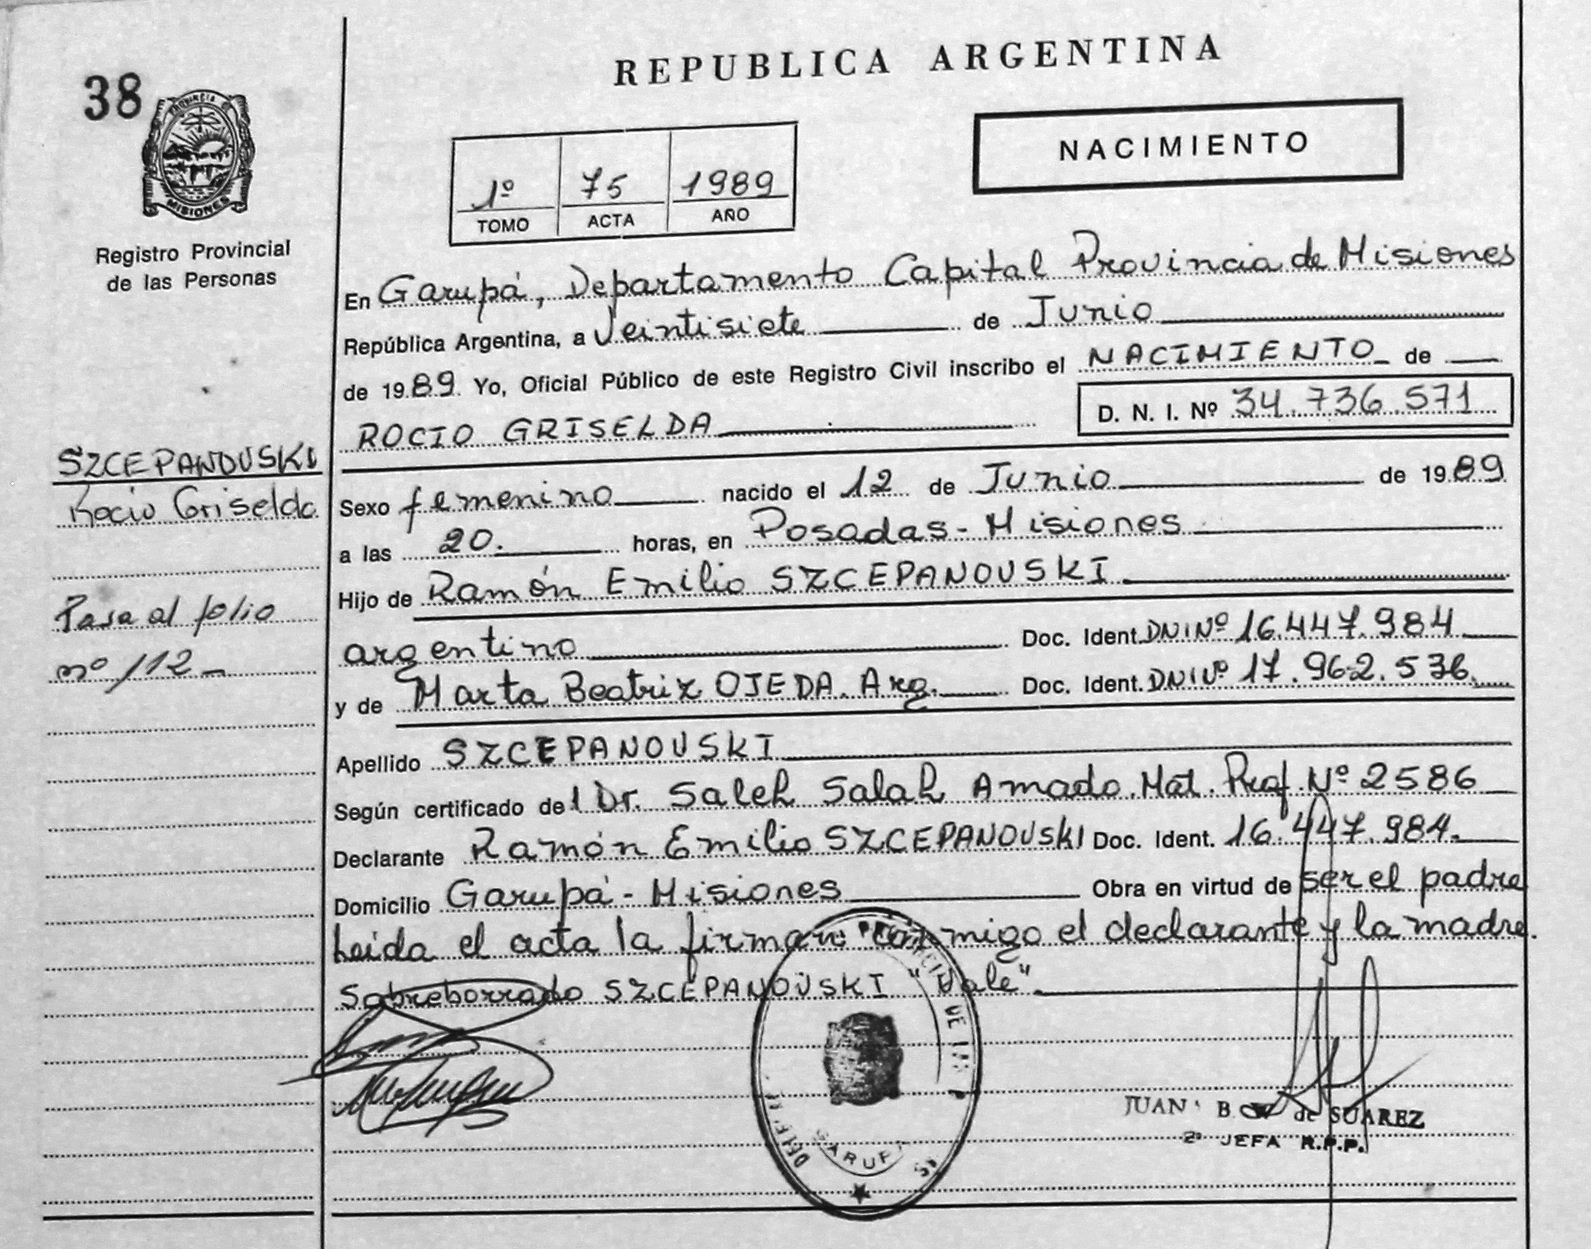 38
REPUBLICA ARGENTINA
PROVINCIA DE
MISIONES
Registro Provincial
de las Personas
NACIMIENTO
1º 75 1989
TOMO ACTA AÑO
En Garupá, Departamento Capital Provincia de Misiones
República Argentina, a Veintisiete de Junio
de 1989 Yo, Oficial Público de este Registro Civil inscribo el NACIMIENTO de
ROCIO GRISELDA
D. N. I. Nº 34.736.571
SZCEPANOUSKI
Rocio Griselda
Sexo femenino nacido el 12 de Junio de 1989
a las 20. horas, en Posadas - Misiones
Hijo de Ramón Emilio SZCEPANOUSKI
Pasa al folio
nº 112
argentino Doc. Ident. DNI Nº 16.447.984
y de Marta Beatriz OJEDA. Arg. Doc. Ident. DNI Nº 17.962.536.
Apellido SZCEPANOUSKI
Según certificado del Dr. Saleh Salah Amado. Mat. Prof. Nº 2586
Declarante Ramón Emilio SZCEPANOUSKI Doc. Ident. 16.447.984.
Domicilio Garupá - Misiones Obra en virtud de ser el padre
Leida el acta la firman conmigo el declarante y la madre.
Sobreborrado SZCEPANOUSKI "Vale".
GARUPA
JUANA B. de SUAREZ
2º JEFA R.P.P.